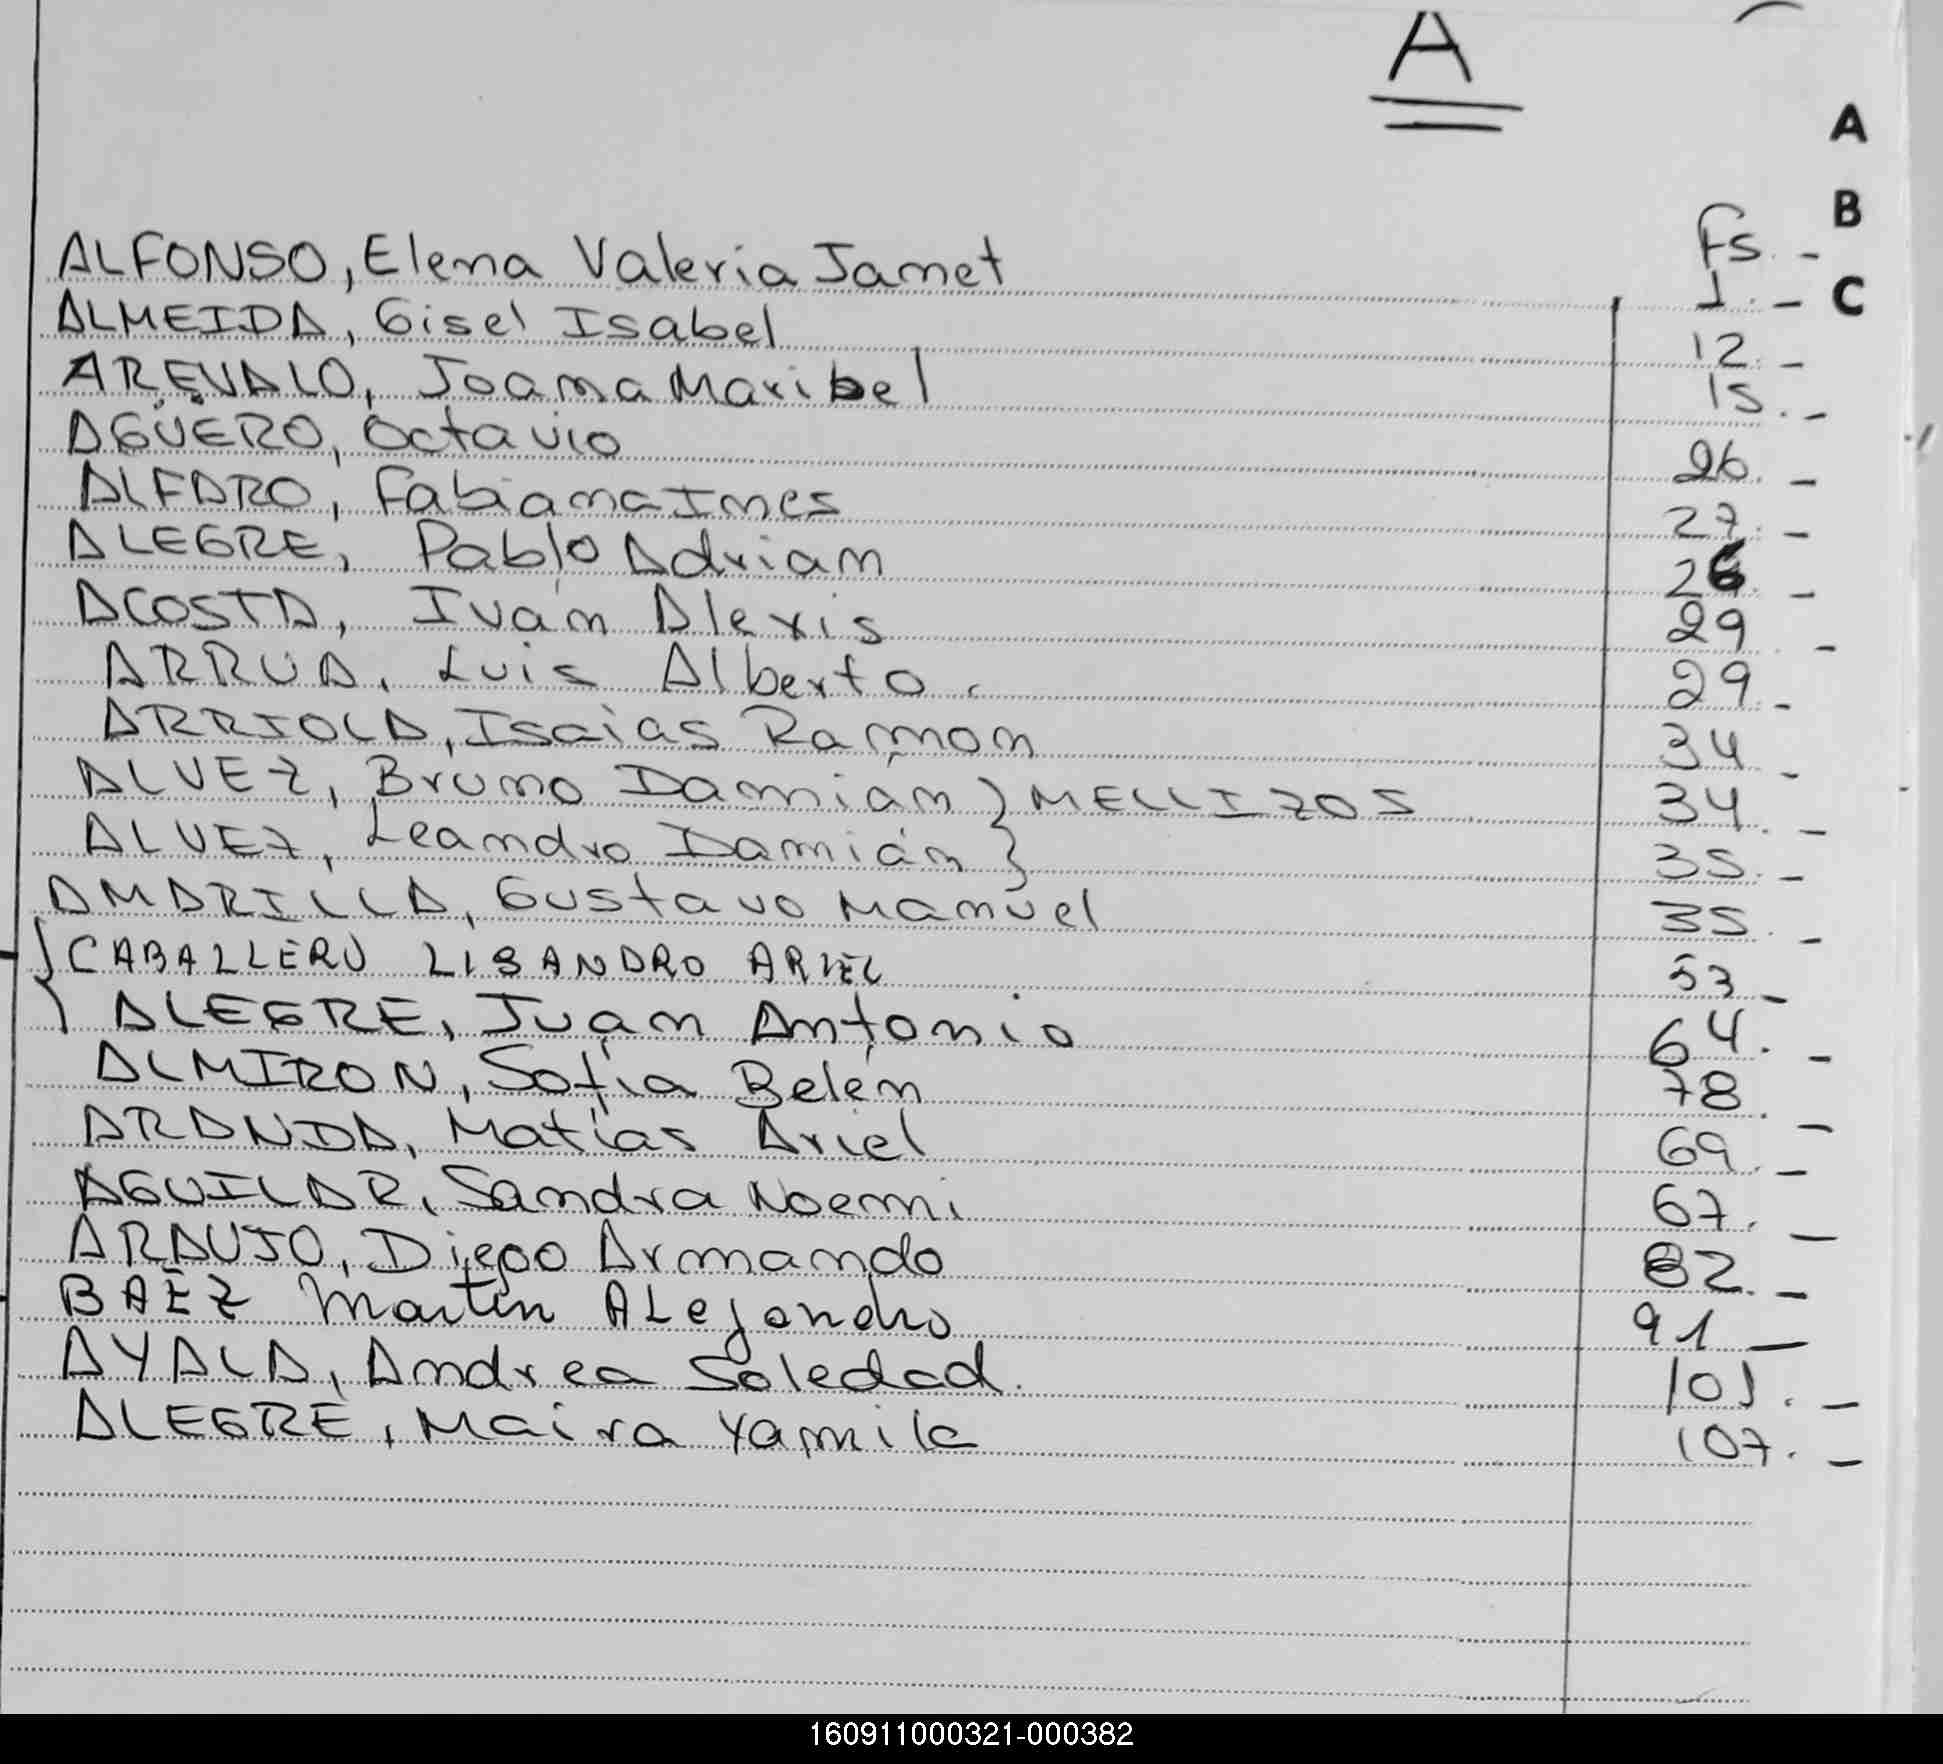 A
A
B
Fs. -
C
ALFONSO, Elena Valeria Janet 1. -
ALMEIDA, Gisel Isabel 12. -
AREVALO, Joana Maribel 15. -
AGÜERO, Octavio 26. -
ALFARO, Fabiana Ines 27. -
ALEGRE, Pablo Adrian 26. -
ACOSTA, Iván Alexis 29 -
ARRUA, Luis Alberto. 29. -
ARRIOLA, Isaias Ramon 34 -
ALVEZ, Bruno Damián } MELLIZOS 34. -
ALVEZ, Leandro Damián } 35. -
AMARILLA, Gustavo Manuel 35. -
{ CABALLERO LISANDRO ARIEL 53 -
ALEGRE, Juan Antonio 64. -
ALMIRON, Sofía Belén 78. -
ARANDA, Matías Ariel 69. -
AGUILAR, Sandra Noemi 67. -
ARAUJO, Diego Armando 82. -
BAEZ Martin ALejandro 91 -
AYALA, Andrea Soledad. 101. -
ALEGRE, Maira Yamila 107. -
160911000321-000382